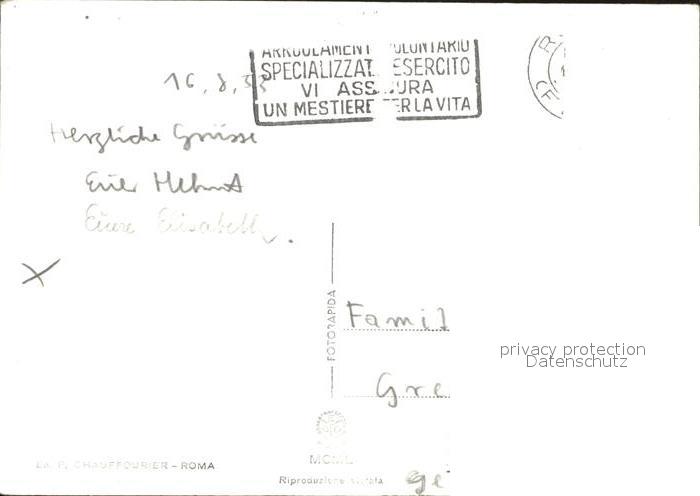 ARRUOLAMENT VOLONTARIO
SPECIALIZZAT ESERCITO
VI ASS URA
UN MESTIERE PER LA VITA
16.8.53
Herzliche Grüsse
Euer Helmut
Eure Elisabeth.
FOTORAPIDA
Famil
Gre
privacy protection
Datenschutz
Ed. P. CHAUFFOURIER - ROMA
MCML
Riproduzione vietata
ge